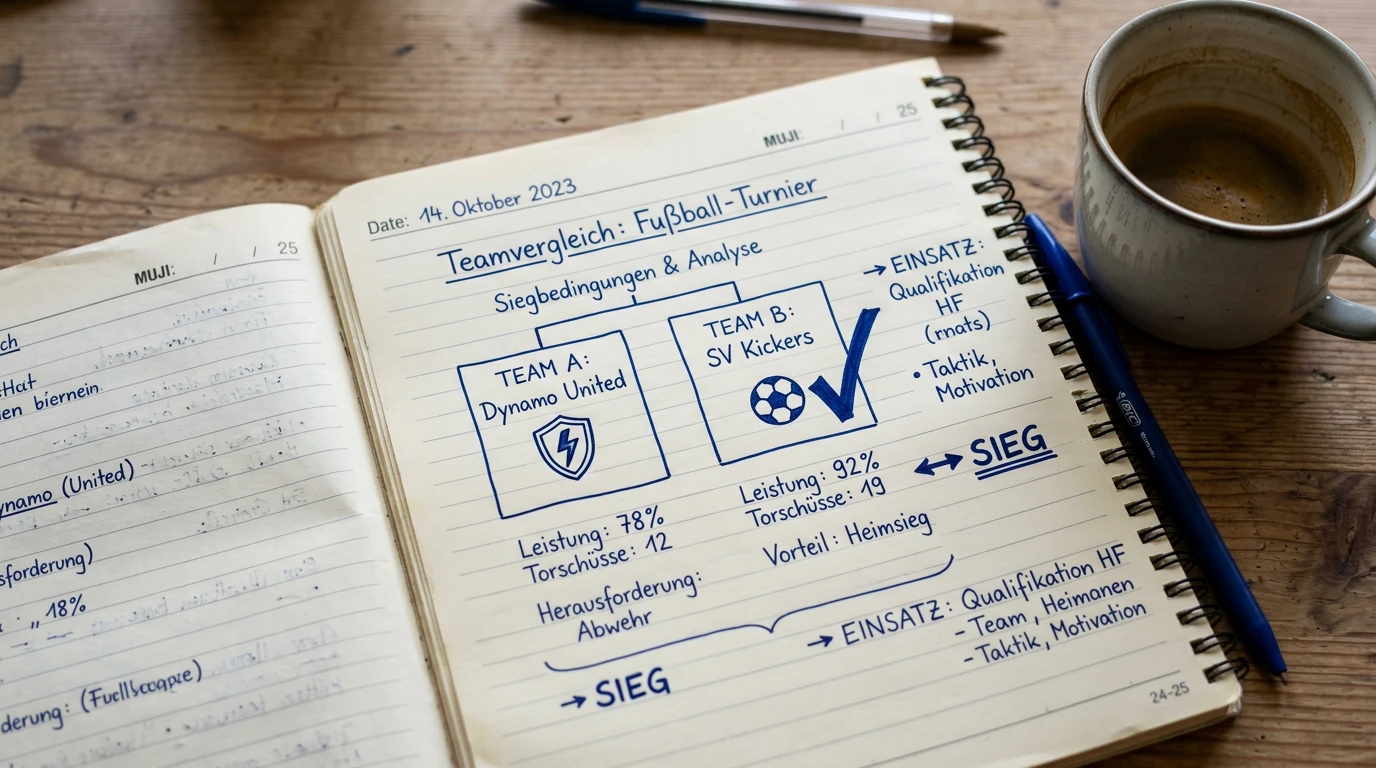 MUJI: / / 25
ch
en biernein.
ynamo (United)
sforderung)
18%
derung:
MUJI: / / 25
Date: 14. Oktober 2023
Teamvergleich: Fußball-Turnier
Siegbedingungen & Analyse
TEAM A:
Dynamo United
Leistung: 78%
Torschüsse: 12
Herausforderung:
Abwehr
TEAM B:
SV Kickers
Leistung: 92%
Torschüsse: 19
Vorteil: Heimsieg
→ EINSATZ:
Qualifikation
HF
(rnats)
• Taktik,
Motivation
↔ SIEG
→ EINSATZ: Qualifikation HF
- Team, Heimanen
- Taktik, Motivation
→ SIEG
24-25
BIC